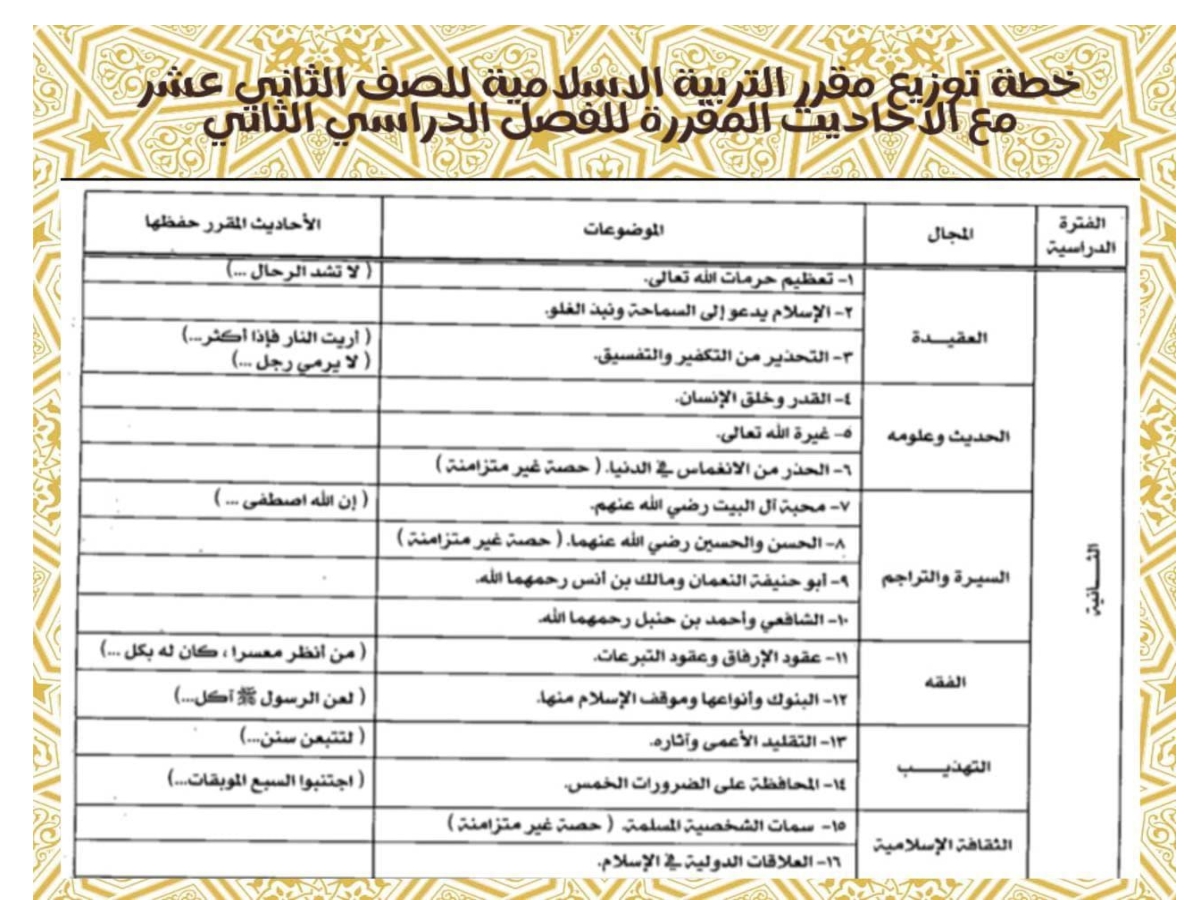 خطة توزيع مقرر التربية الاسلامية للصف الثاني عشر
مع الاحاديث المقررة للفصل الدراسي الثاني
الفترة الدراسية
المجال
الموضوعات
الأحاديث المقرر حفظها
الثـــانية
العقيـــدة
١- تعظيم حرمات الله تعالى.
( لا تشد الرحال ...)
٢- الإسلام يدعو إلى السماحة ونبذ الغلو.
٣- التحذير من التكفير والتفسيق.
( أريت النار فإذا أكثر...)
( لا يرمي رجل ...)
الحديث وعلومه
٤- القدر وخلق الإنسان.
٥- غيرة الله تعالى.
٦- الحذر من الانغماس في الدنيا. ( حصة غير متزامنة )
السيرة والتراجم
٧- محبة آل البيت رضي الله عنهم.
( إن الله اصطفى ... )
٨- الحسن والحسين رضي الله عنهما. ( حصة غير متزامنة )
٩- أبو حنيفة النعمان ومالك بن أنس رحمهما الله.
١٠- الشافعي وأحمد بن حنبل رحمهما الله.
الفقه
١١- عقود الإرفاق وعقود التبرعات.
( من أنظر معسرا ، كان له بكل ...)
١٢- البنوك وأنواعها وموقف الإسلام منها.
( لعن الرسول ﷺ آكل...)
التهذيـــب
١٣- التقليد الأعمى وآثاره.
( لتتبعن سنن...)
١٤- المحافظة على الضرورات الخمس.
( اجتنبوا السبع الموبقات...)
الثقافة الإسلامية
١٥- سمات الشخصية المسلمة. ( حصة غير متزامنة )
١٦- العلاقات الدولية في الإسلام.